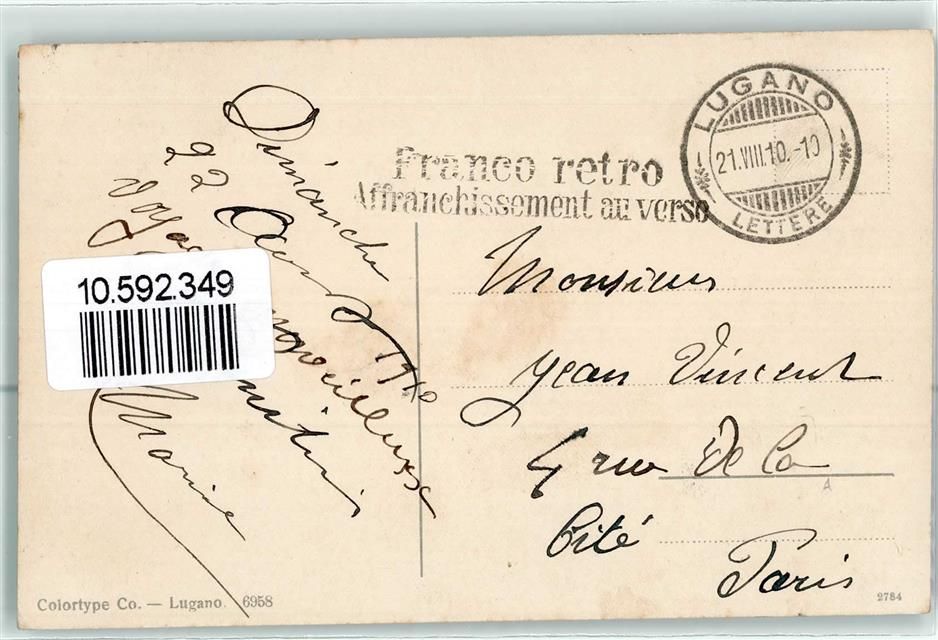 LUGANO
21.VIII.10.-10
LETTERE
Franco retro
Affranchissement au verso
Dimanche
22 Août 1910
Marie
10.592.349
Monsieur
Jean Vincent
4 rue de la
Cité
Paris
Colortype Co. — Lugano 6958
2784